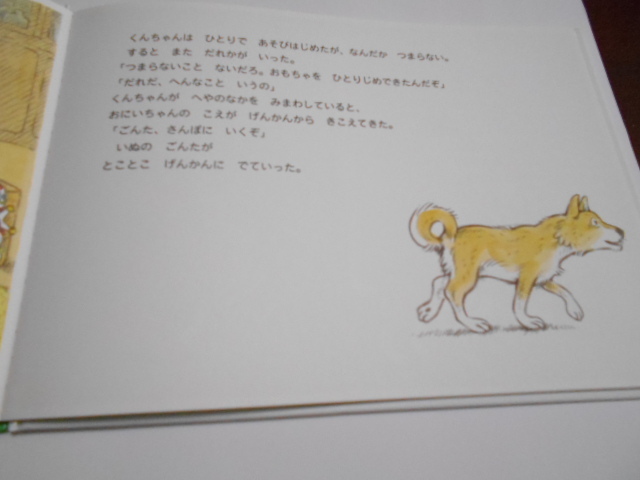 くんちゃんは　ひとりで　あそびはじめたが、なんだか　つまらない。
すると　また　だれかが　いった。
「つまらないこと　ないだろ。おもちゃを　ひとりじめできたんだぞ」
「だれだ、へんなこと　いうの」
くんちゃんが　へやのなかを　みまわしていると、
おにいちゃんの　こえが　げんかんから　きこえてきた。
「ごんた、さんぽに　いくぞ」
いぬの　ごんたが
とことこ　げんかんに　でていった。